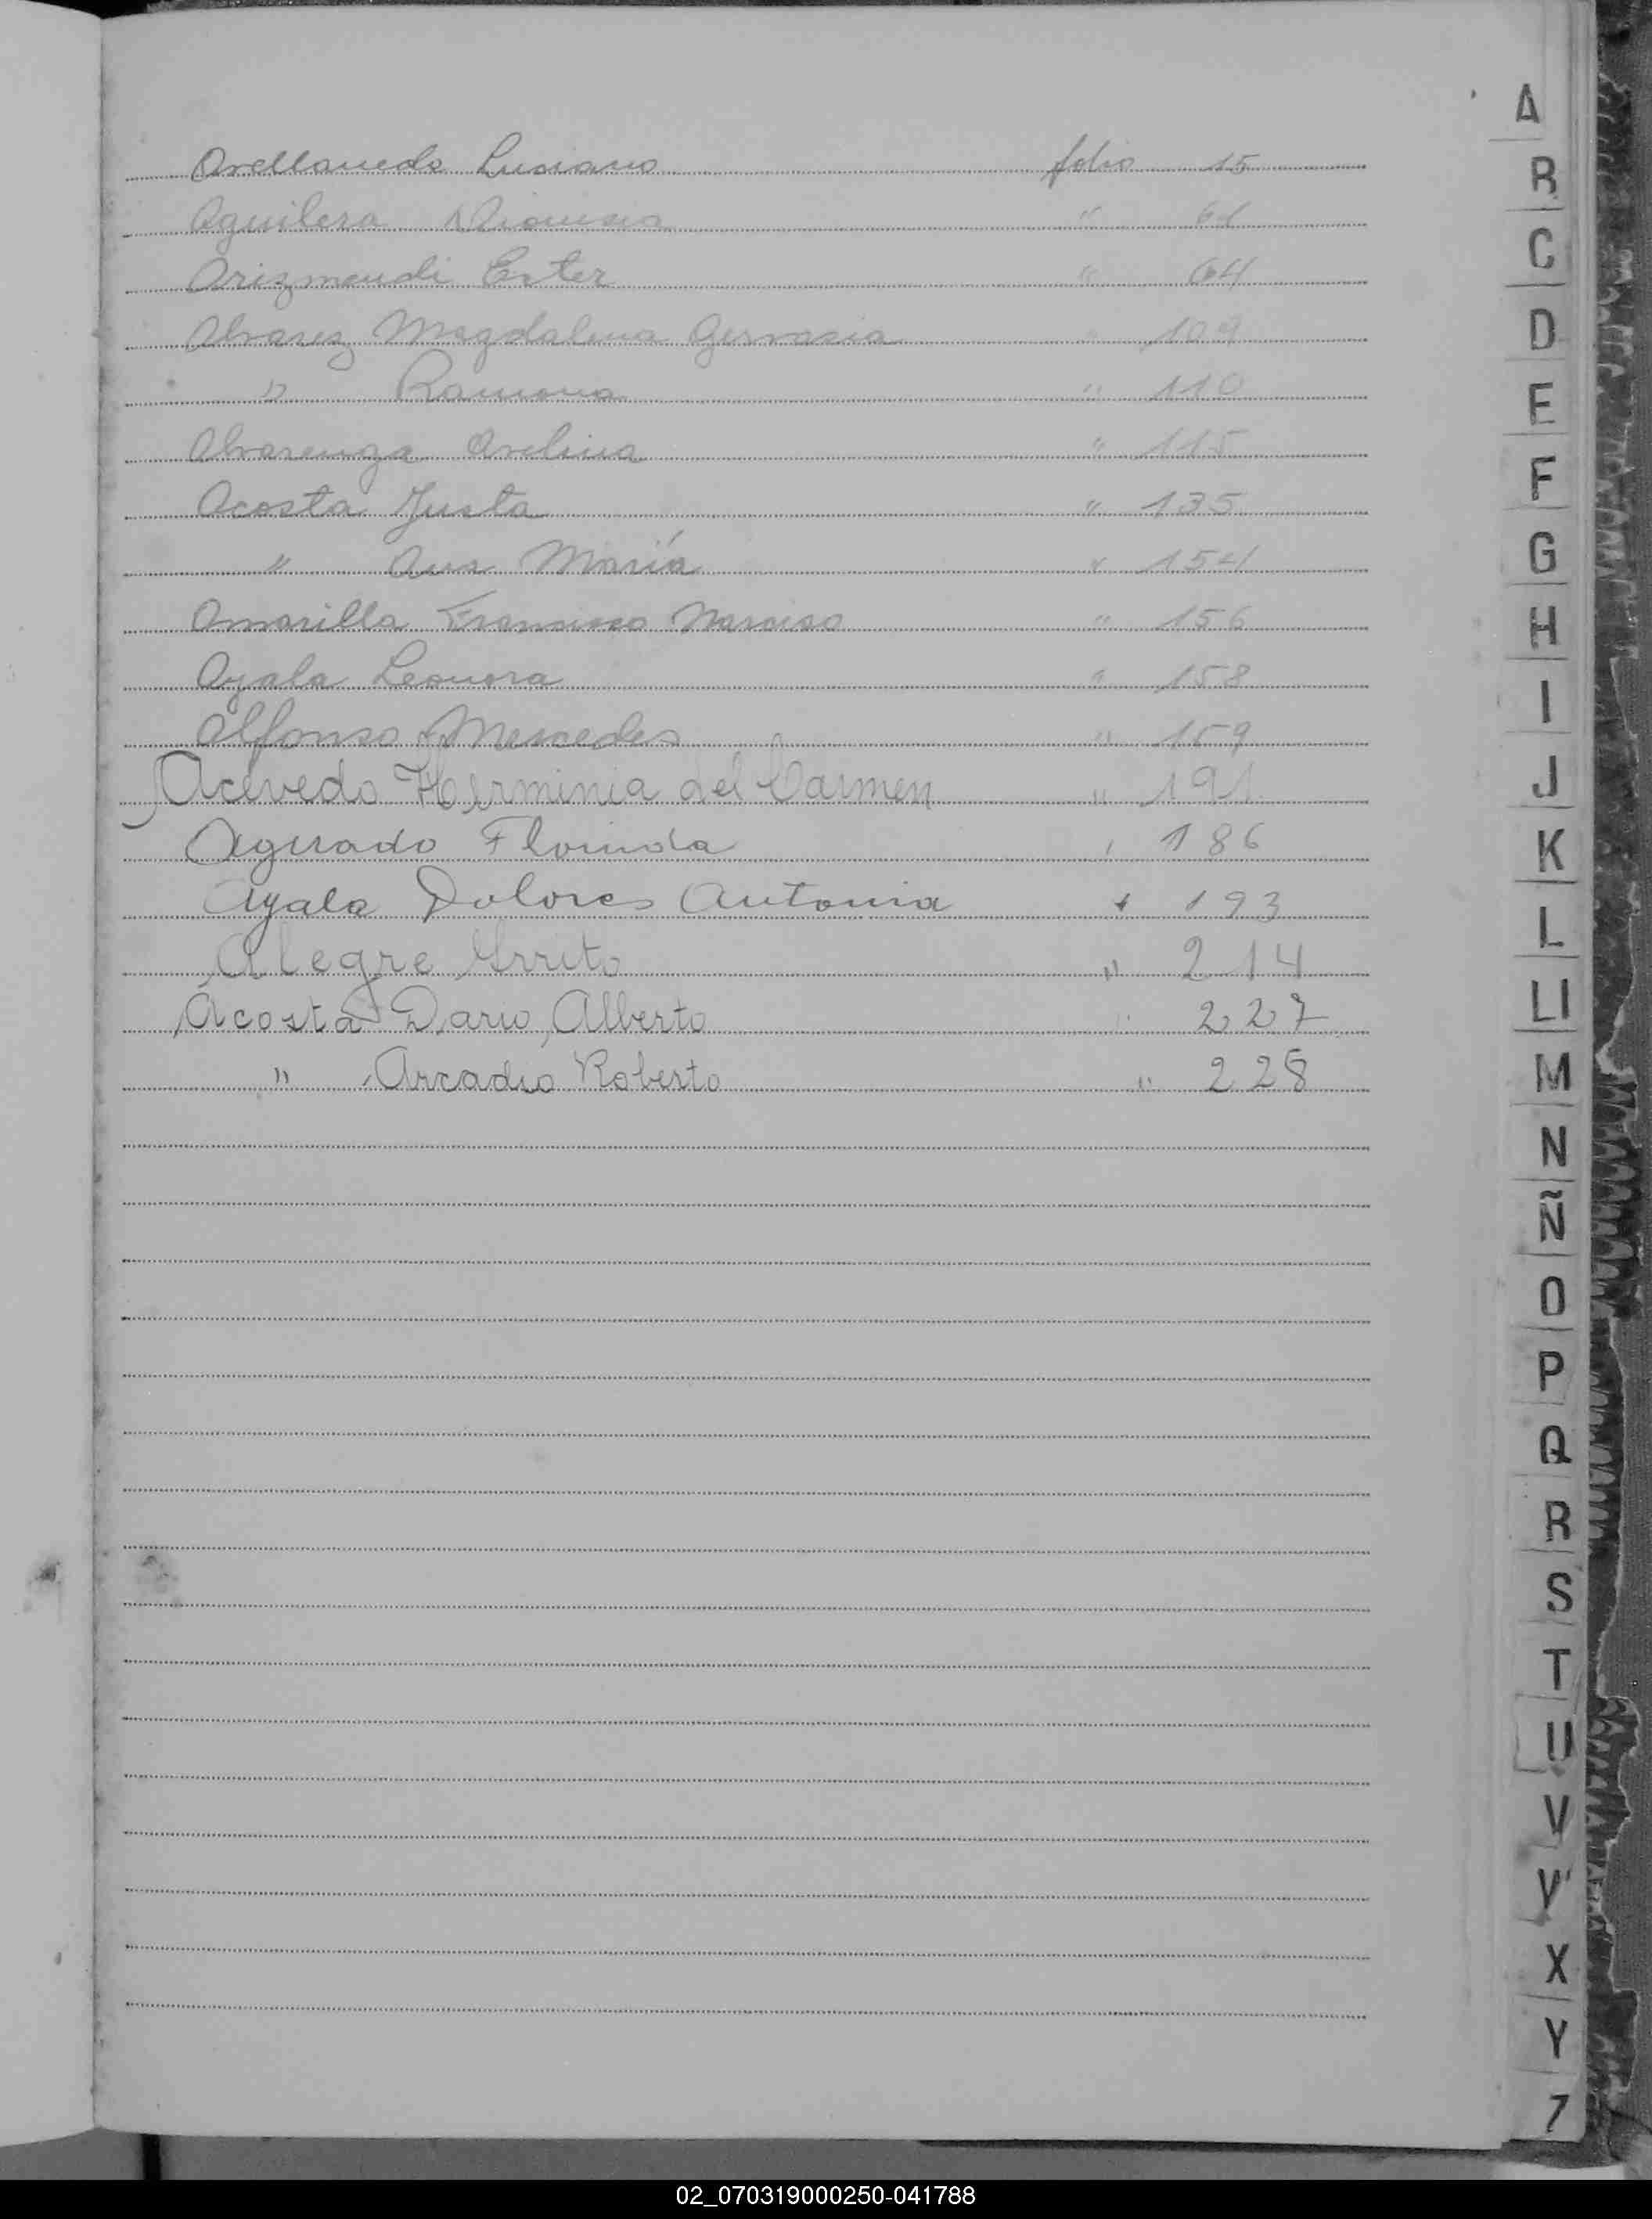 Avellaneda Lusiano folio 15
Aguilera Dionisia " 61
Arizmendi Ester " 64
Alvarez Magdalena Gervasia " 109
" Ramona " 110
Alvarenga Avelina " 115
Acosta Justa " 135
" Ana María " 154
Amarilla Francisco Narciso " 156
Ayala Leonora " 158
Alfonso Mercedes " 159
Acevedo Herminia del Carmen " 191
Aguado Florinda " 186
Ayala Dolores Antonia " 193
Alegre " 214
Acosta Dario Alberto " 227
" Arcadio Roberto " 228
A
B
C
D
E
F
G
H
I
J
K
L
Ll
M
N
Ñ
O
P
Q
R
S
T
U
V
W
X
Y
Z
02_070319000250-041788